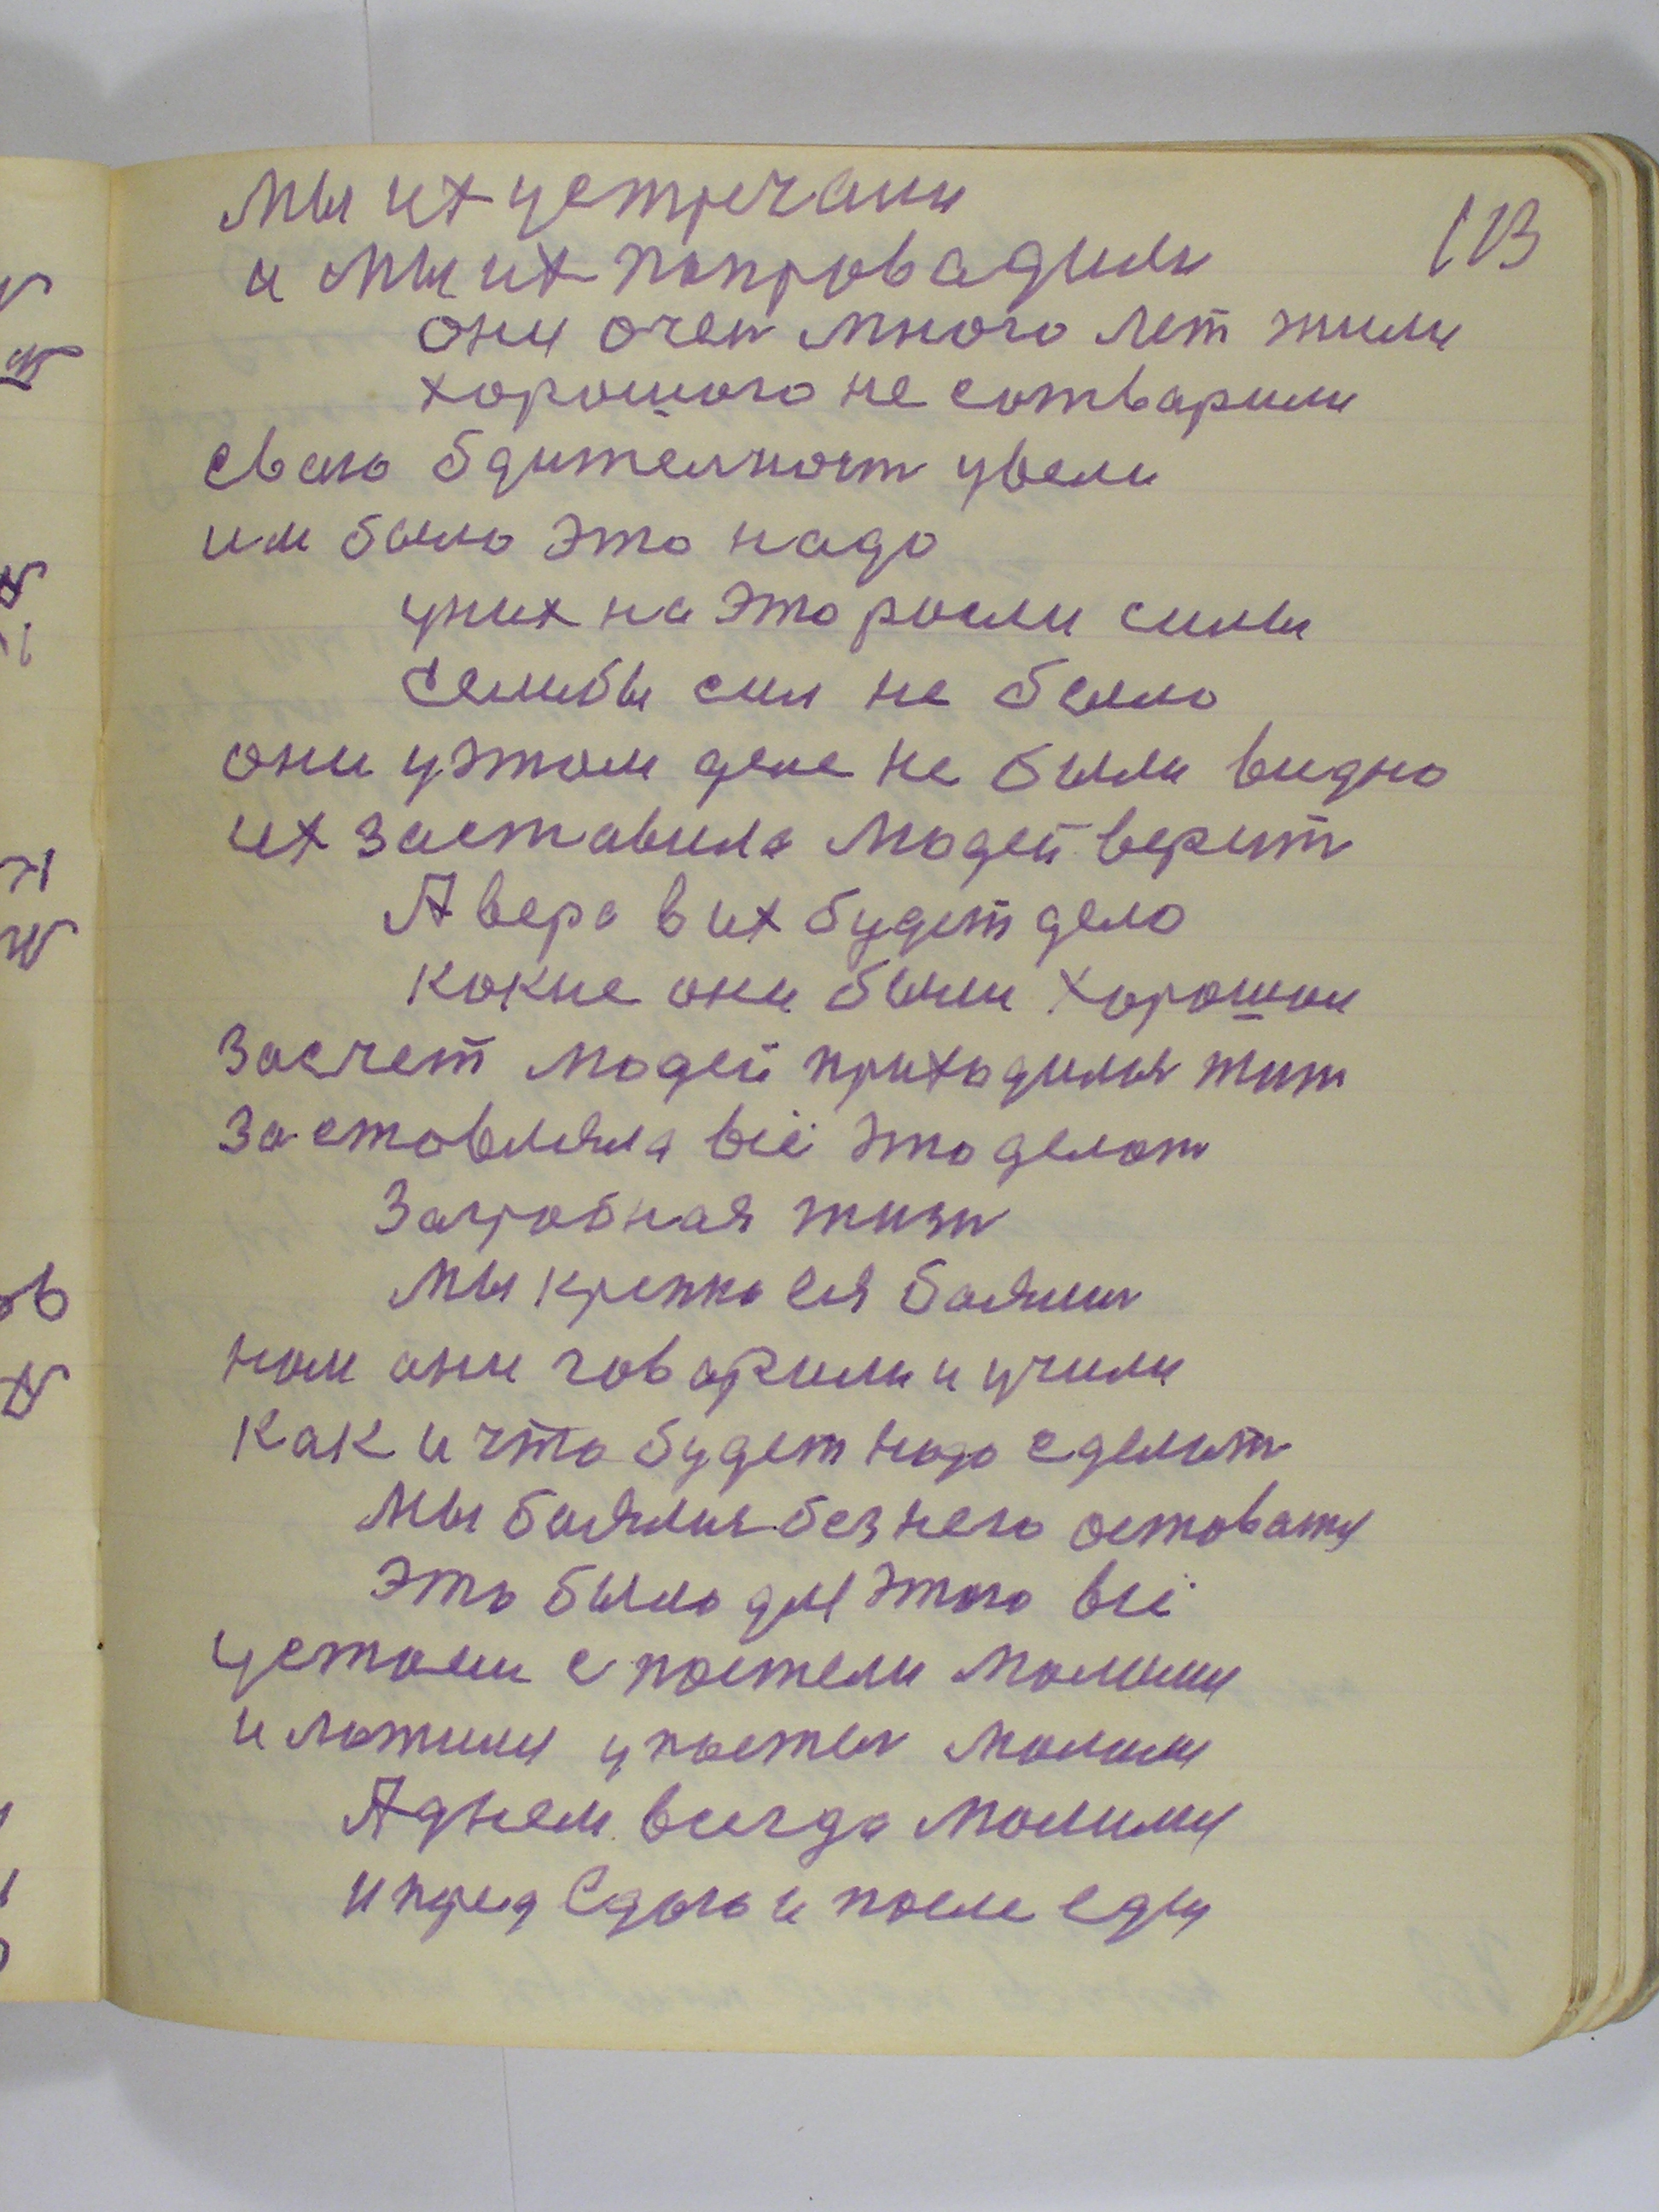 113
мы их устречали
и мы их попровадили
они очен много лет жили
хорошого не сотварили
сваю бдителност увели
им было это надо
уних на это росли силы
Селибы сил не было
они уэтом деле не были видно
их заставила людей верит
А вера в их будет дело
кокие они были хорошои
засчет людей приходилос жит
Застовляла всё это делат
Загробная жизн
мы крепко ея баялис
нам они говарили и учили
как и что будет надо сделат
мы баялис без него оставатся
это было для этого всё
устали с постели молилис
и ложилис упостел молилис
А днем всегда молилис
и перед Едою и после еды